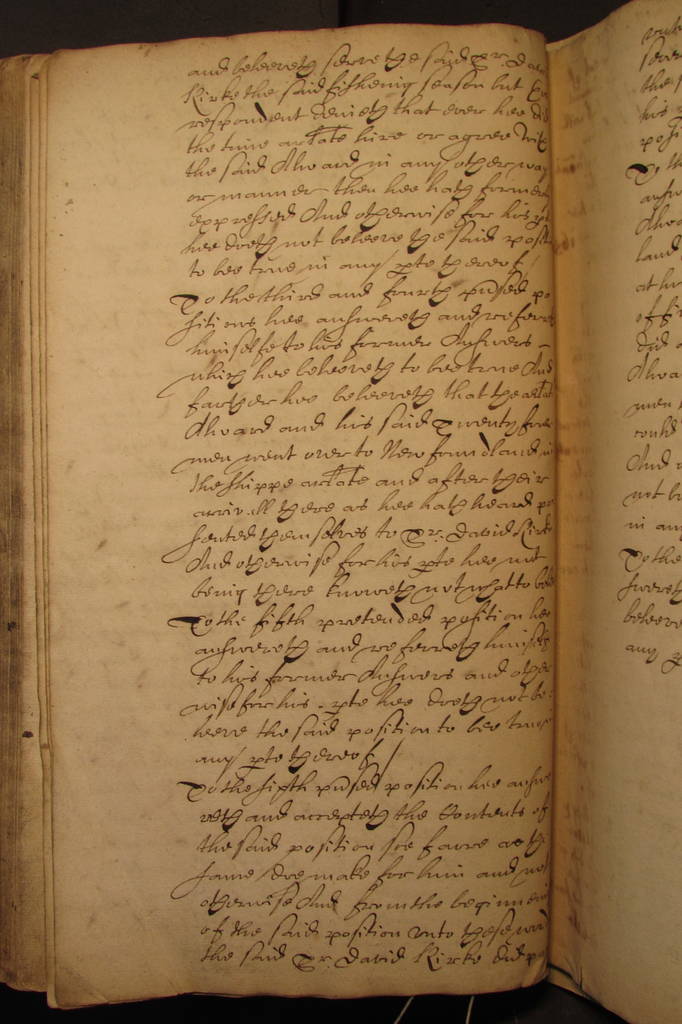 and beleeveth serve the said Sr. Da
Kirke the said fishenig season but
respondent denieth that ever hee did
the time arlate hire or agree with
the said Alward in any other way
or manner then hee hath former
expressed And otherwise for his pte
hee doeth not beleeve the said posit
to bee true in any pte thereof /
To the third and fourth pnded po
sitions hee answereth and referreth
himselfe to his former Answers
which hee beleeveth to bee true And
farther hee beleeveth that the arlat
Alward and his said Twenty fower
men went over to Newfoundland in
the shippe arlate and after their
arrivall there as hee hath heard pre
sented themselves to Sr. David Kirke
And otherwise for his pte hee not
being there knoweth not what to bele
To the fifth pretended position hee
answereth and referreth himself
to his former Answers and other
wise for his pte hee doeth not be
leeve the said position to bee true
any pte thereof /
To the sixth pnded position hee answe
reth and accepteth the Contents of
the said position soe farre as the
same doe make for him and not
otherwise And from the beginning
of the said position unto these words
the said Sr. David Kirke did
To the
Alwa
land
at h
of fi
did a
Alwa
men
could
And
not b
in any
To the
swereth
beleeve
any p